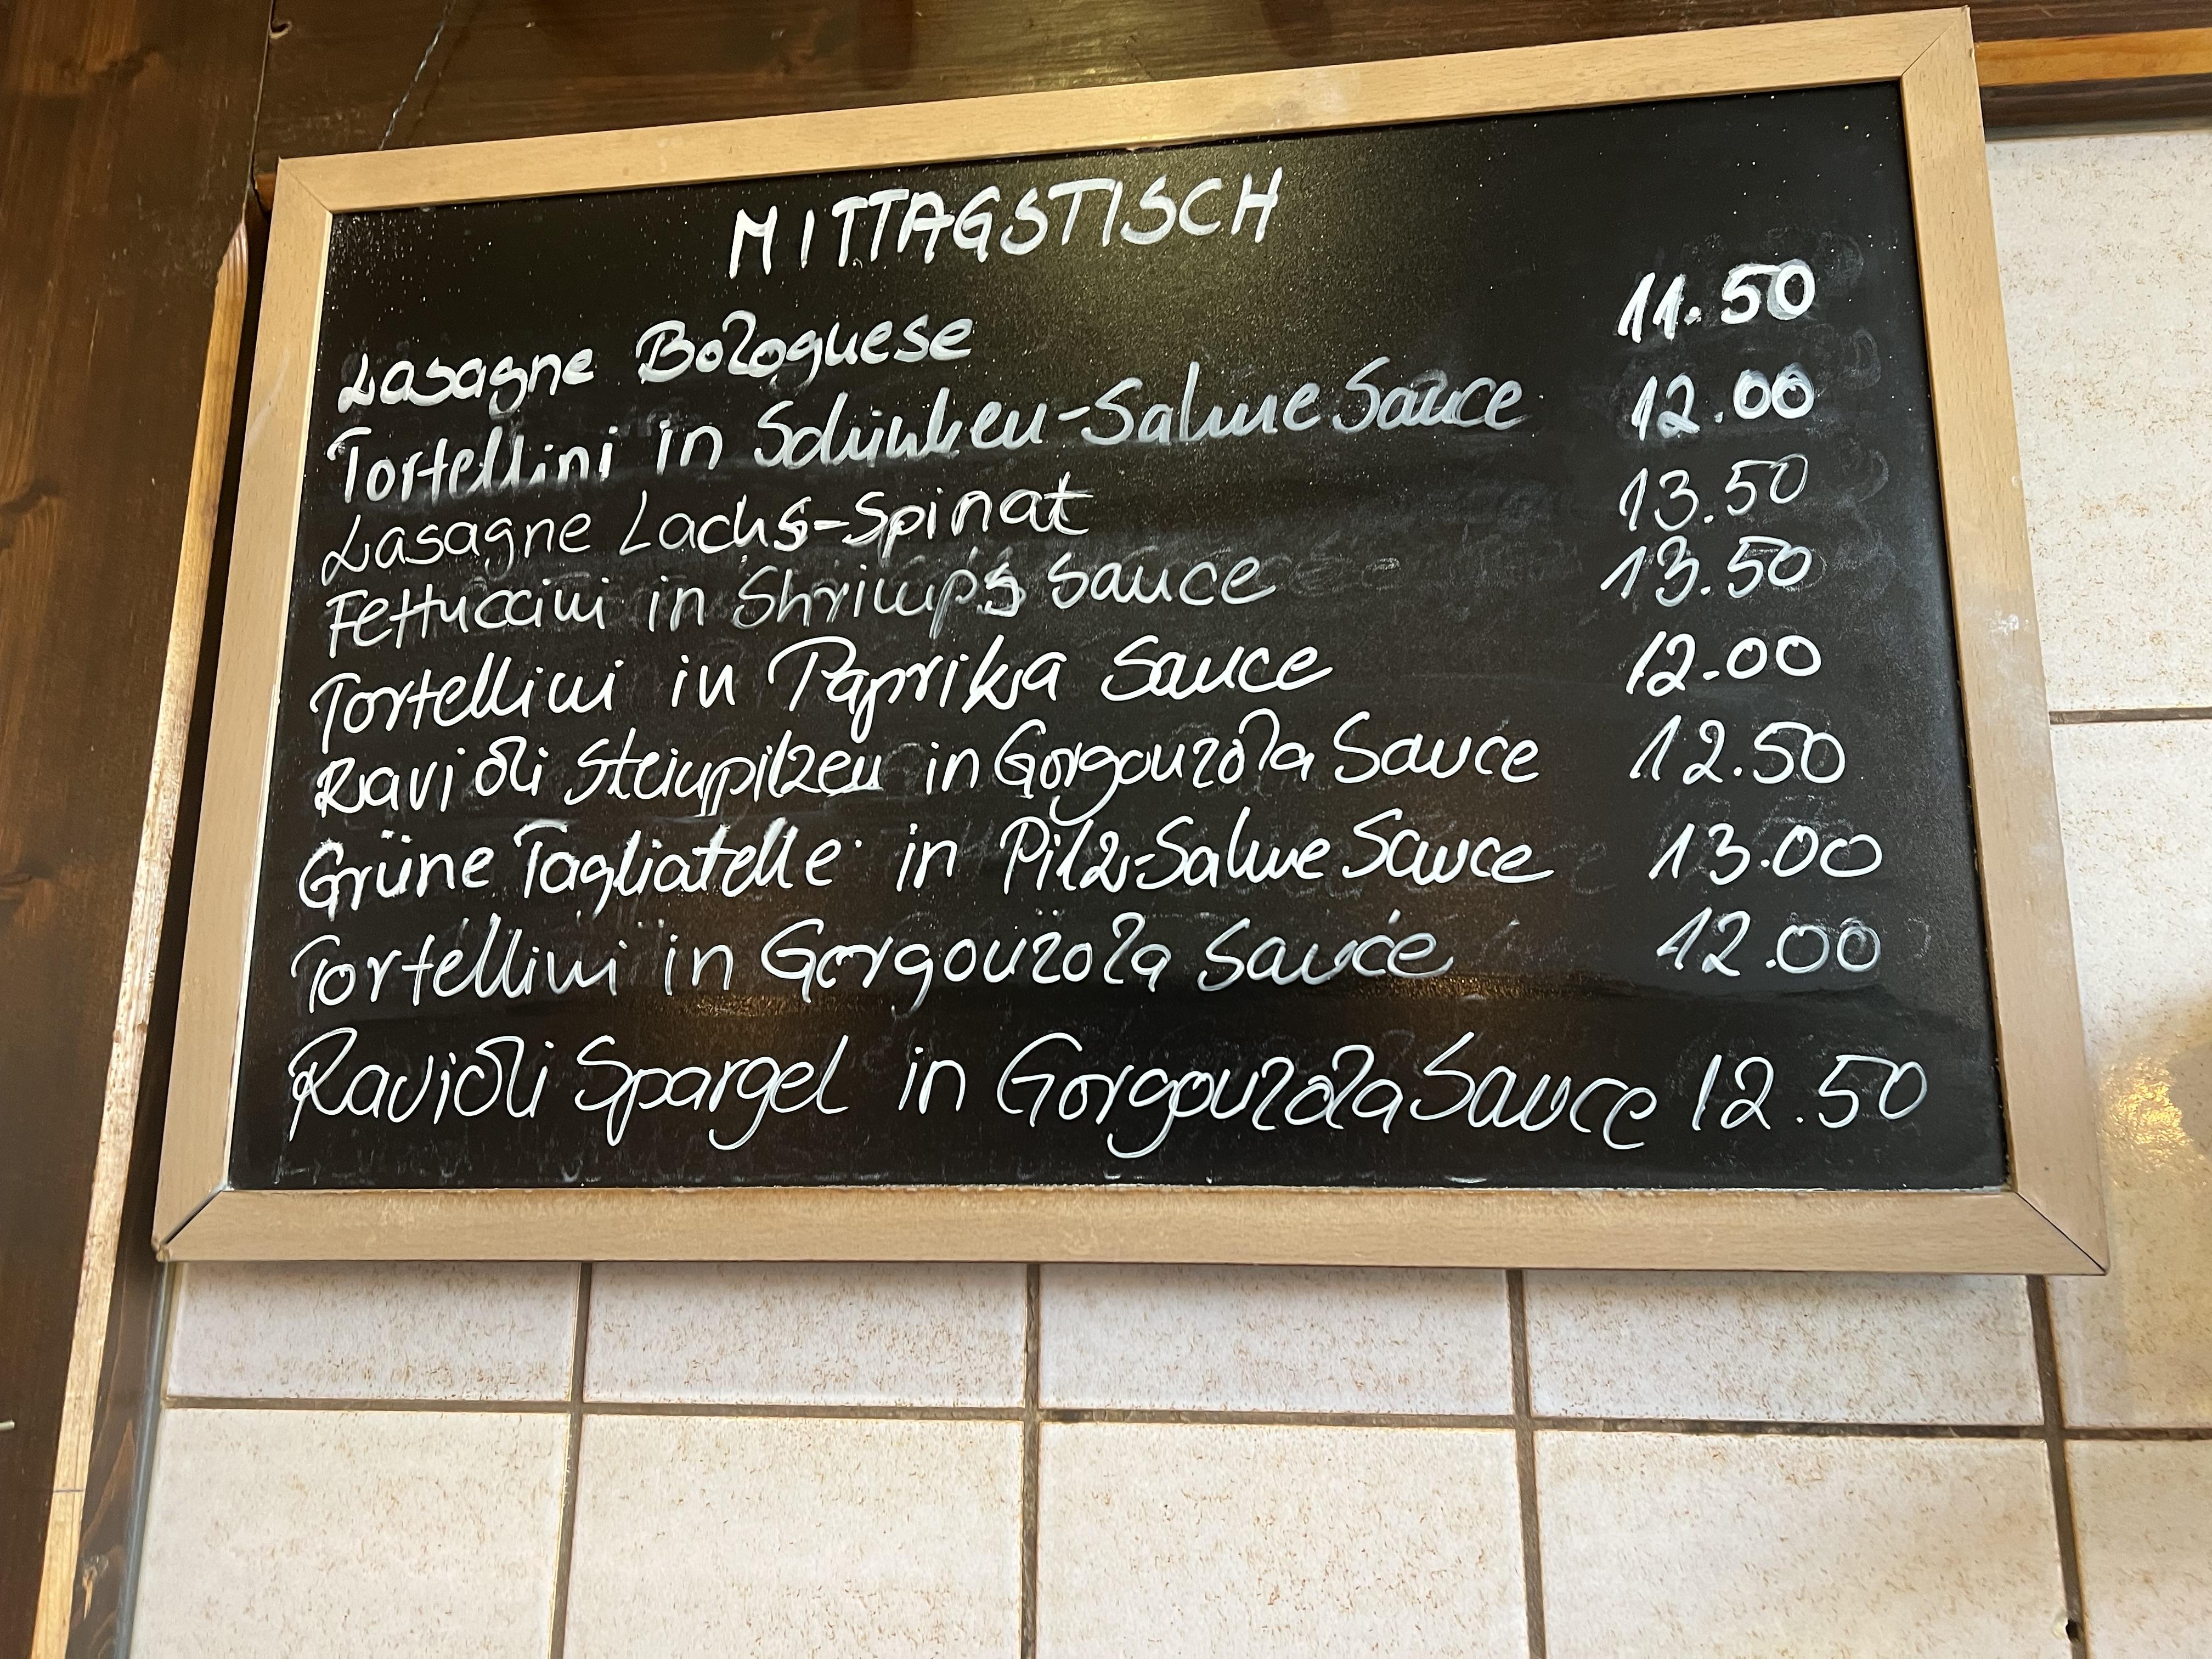 MITTAGSTISCH
Lasagne Bolognese 11.50
Tortellini in Schinken-Sahne Sauce 12.00
Lasagne Lachs-Spinat 13.50
Fettuccini in Shrimps Sauce 13.50
Tortellini in Paprika Sauce 12.00
Ravioli Steinpilzen in Gorgonzola Sauce 12.50
Grüne Tagliatelle in Pilz-Sahne Sauce 13.00
Tortellini in Gorgonzola Sauce 12.00
Ravioli Spargel in Gorgonzola Sauce 12.50